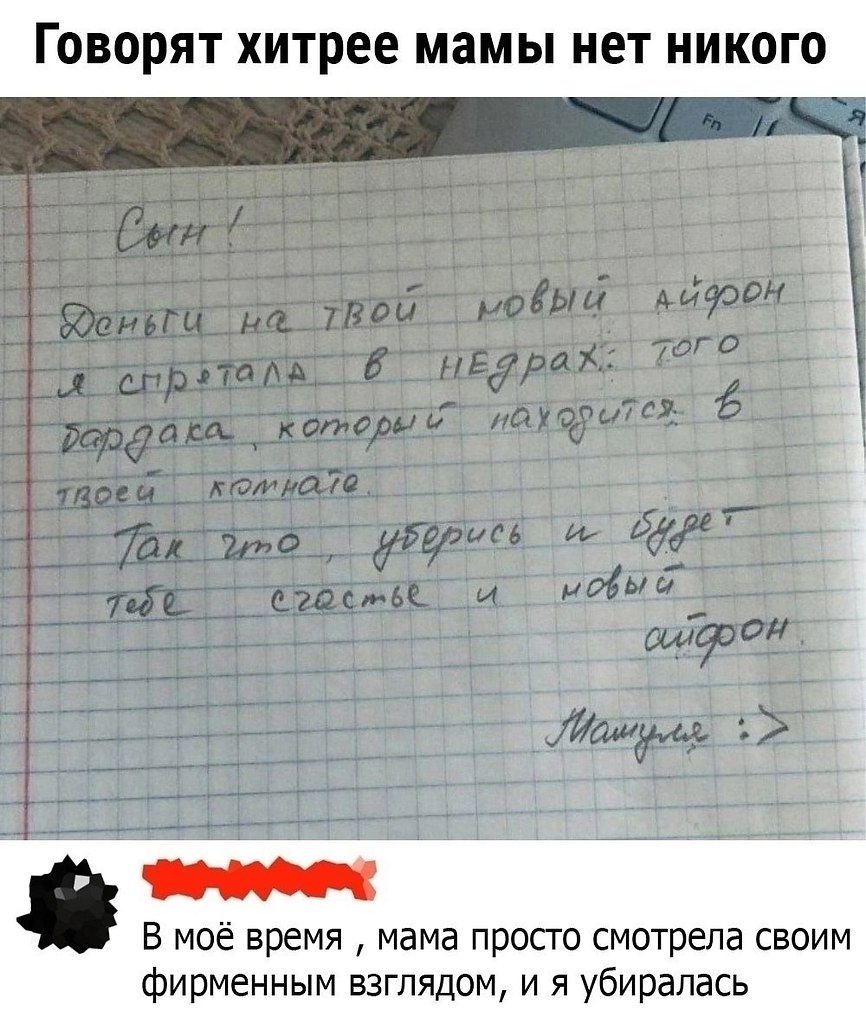 Говорят хитрее мамы нет никого
Fn
Я
Сын!
Деньги на твой новый айфон
я спрятала в недрах: того
бардака, который находится в
твоей комнате.
Так что, уберись и будет
тебе счастье и новый
айфон.
Мамуля :>
В моё время , мама просто смотрела своим
фирменным взглядом, и я убиралась